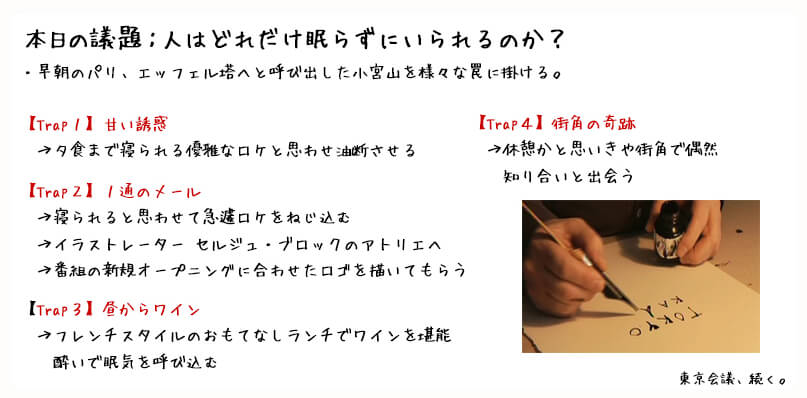 本日の議題；人はどれだけ眠らずにいられるのか？
・早朝のパリ、エッフェル塔へと呼び出した小宮山を様々な罠に掛ける。
【Trap１】甘い誘惑
→夕食まで寝られる優雅なロケと思わせ油断させる
【Trap２】１通のメール
→寝られると思わせて急遽ロケをねじ込む
→イラストレーター セルジュ・ブロックのアトリエへ
→番組の新規オープニングに合わせたロゴを描いてもらう
【Trap３】昼からワイン
→フレンチスタイルのおもてなしランチでワインを堪能
酔いで眠気を呼び込む
【Trap４】街角の奇跡
→休憩かと思いきや街角で偶然
知り合いと出会う
TOKYO
KAY
東京会議、続く。